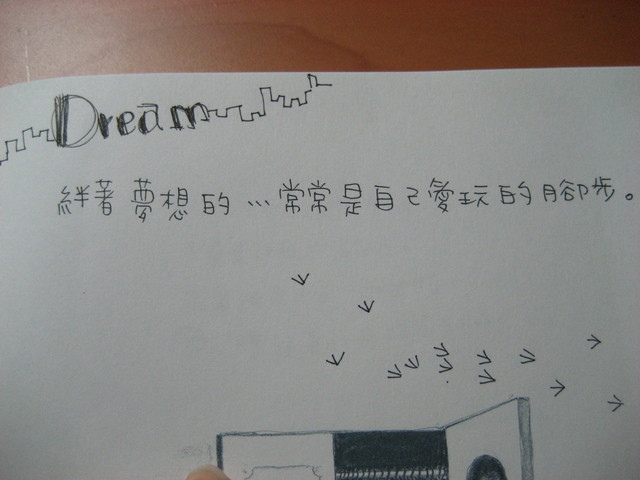 Dream
絆著夢想的...常常是自己愛玩的腳步。